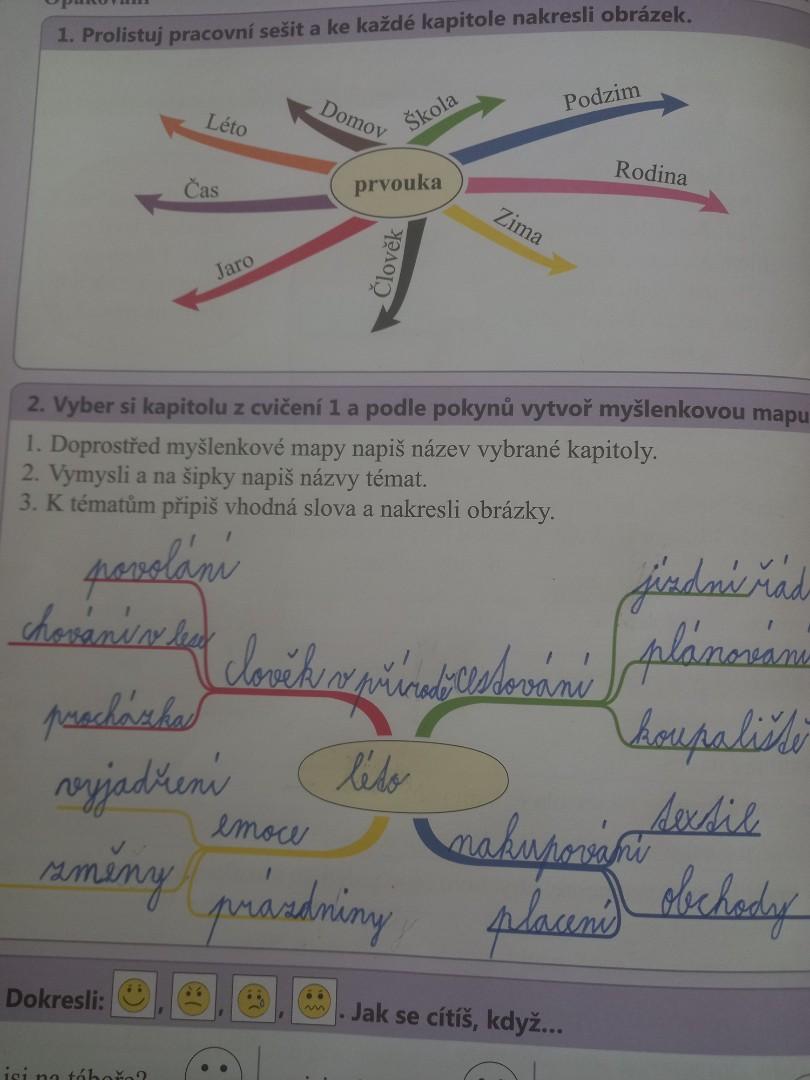 Opakování
1. Prolistuj pracovní sešit a ke každé kapitole nakresli obrázek.
Léto
Domov
Škola
Podzim
Čas
prvouka
Rodina
Jaro
Člověk
Zima
2. Vyber si kapitolu z cvičení 1 a podle pokynů vytvoř myšlenkovou mapu
1. Doprostřed myšlenkové mapy napiš název vybrané kapitoly.
2. Vymysli a na šipky napiš názvy témat.
3. K tématům připiš vhodná slova a nakresli obrázky.
povolání
chování v lese
procházka
člověk v přírodě
cestování
jízdní řád
plánování
koupaliště
léto
vyjadření
emoce
změny
prázdniny
nakupování
textil
obchody
placení
Dokresli: , , , . Jak se cítíš, když...
jsi na táboře?